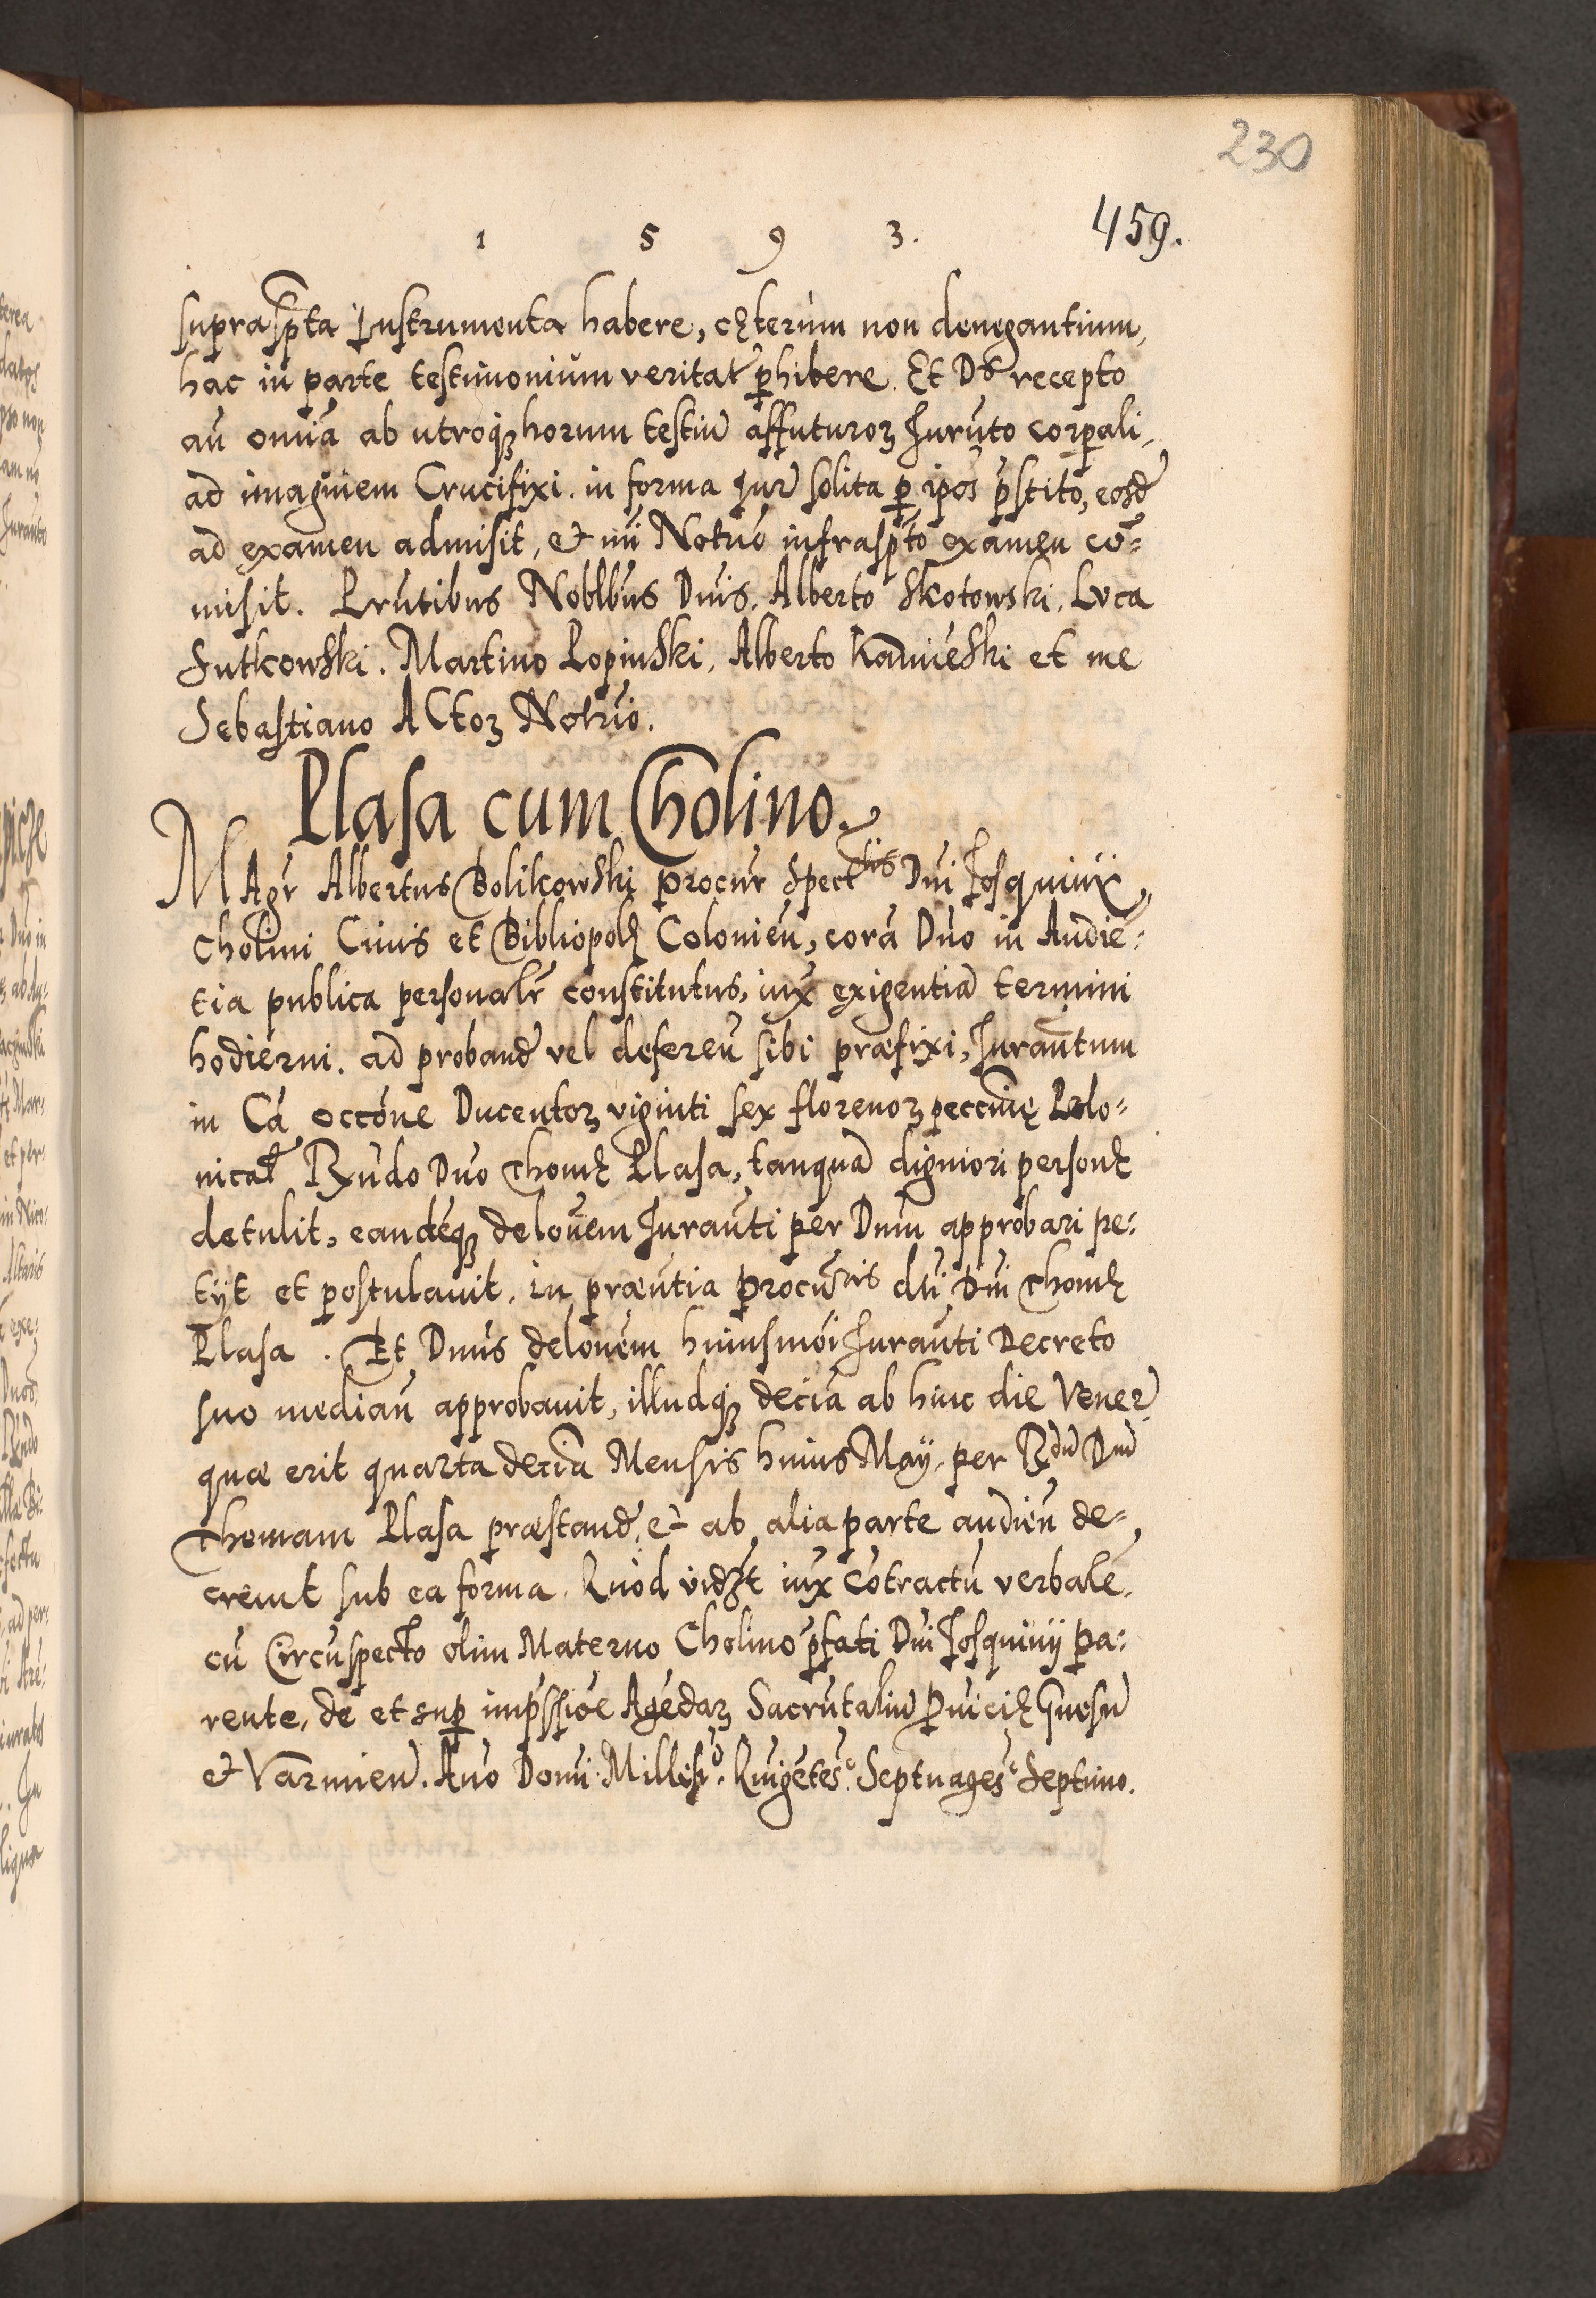 230
1 5 9 3. 459.
supraspta Instrumenta habere, cęterum non denegantium,
hac in parte testimonium veritat perhibere. Et Ds recepto
an omia ab utroqꝫ horum testiū affuturoꝫ Juruto corpali,
ad imaginem Crucifixi. in forma Iur solita ꝑ ipos pstito, eosd
ad examen admisit, et mi Notrio infraspto examen co=
misit. Prntibus Noblbus Dnis. Alberto Skotowski, Luca
Sutkowski. Martino Lopinski, Alberto Kamieski et me
Sebastiano Actoꝫ Notrio.
Plasa cum Cholino.
MAgr Albertus Bolikowski procur Spectlis Dni Josquinij
Cholini Ciuis et Bibliopolę Colonien, cora Dno in Audie=
tia publica personalr constitutus, iux exigentia termini
hodierni. ad proband vel deferen sibi præfixi, Juramtum
in Ca occone Ducentoꝫ viginti sex florenoꝫ peccunię Polo=
nical Rndo Dno Thomę Plasa, tanqua digniori personę
detulit, eandeqꝫ delonem Juramti per Dnm approbari pe=
tijt et postulauit. in præntia procuris dti Dni Thomę
Plasa. Et Dnus delonem huiusmoi Juramti Decreto
suo median approbauit, illudqꝫ decia ab hinc die Vener
quæ erit quarta decia Mensis huius Maij, per Rdu Dnu
Thomam Plasa præstand, et ab alia parte audien de=
creuit sub ea forma. Quod vidꝫt iux cotractu verbale.
cu Circuspecto olim Materno Cholino pfati Dni Josquinij pa=
rente, de et sup impssioe Agedaꝫ Sacrutaliu Puicię Gnesn
et Varmien. Ano Domi Millesio. Quigetes. Septuages Septimo.